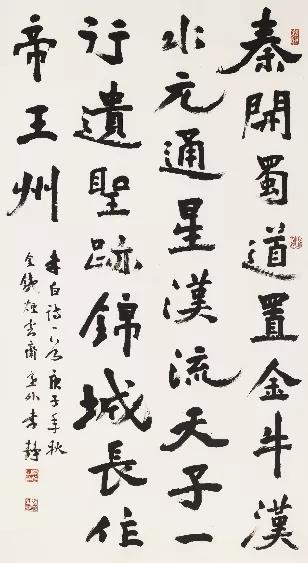 秦開蜀道置金牛漢
水元通星漢流天子一
行遺聖跡錦城長作
帝王州
李白詩一首庚子年秋
雲齋李靜